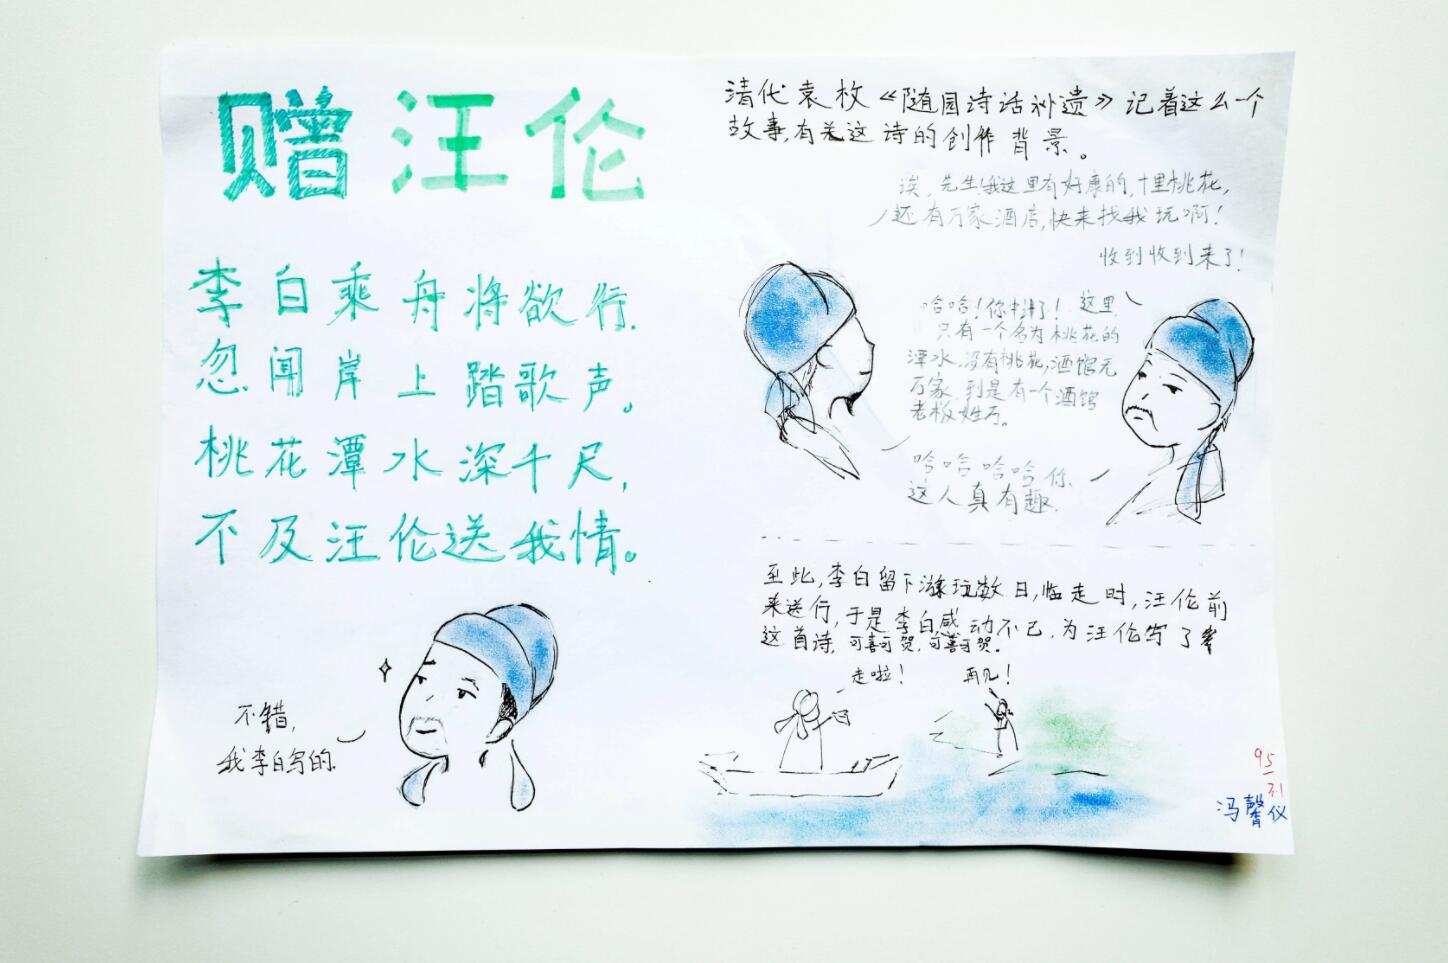 赠汪伦
李白乘舟将欲行,
忽闻岸上踏歌声。
桃花潭水深千尺,
不及汪伦送我情。
不错,
我李白写的.
清代袁枚《随园诗话补遗》记着这么一个
故事,有关这诗的创作背景。
诶,先生!我这里有好康的,十里桃花,
还有万家酒店,快来找我玩啊!
收到收到来了!
哈哈!你中计了!这里
只有一个名为桃花的
潭水,没有桃花,酒馆无
万家,到是有一个酒馆
老板姓万。
哈哈哈哈你
这人真有趣
至此,李白留下游玩数日,临走时,汪伦前
来送行,于是李白感动不已,为汪伦写了
这首诗,可喜可贺,可喜可贺。
走啦!
再见!
95
冯馨仪